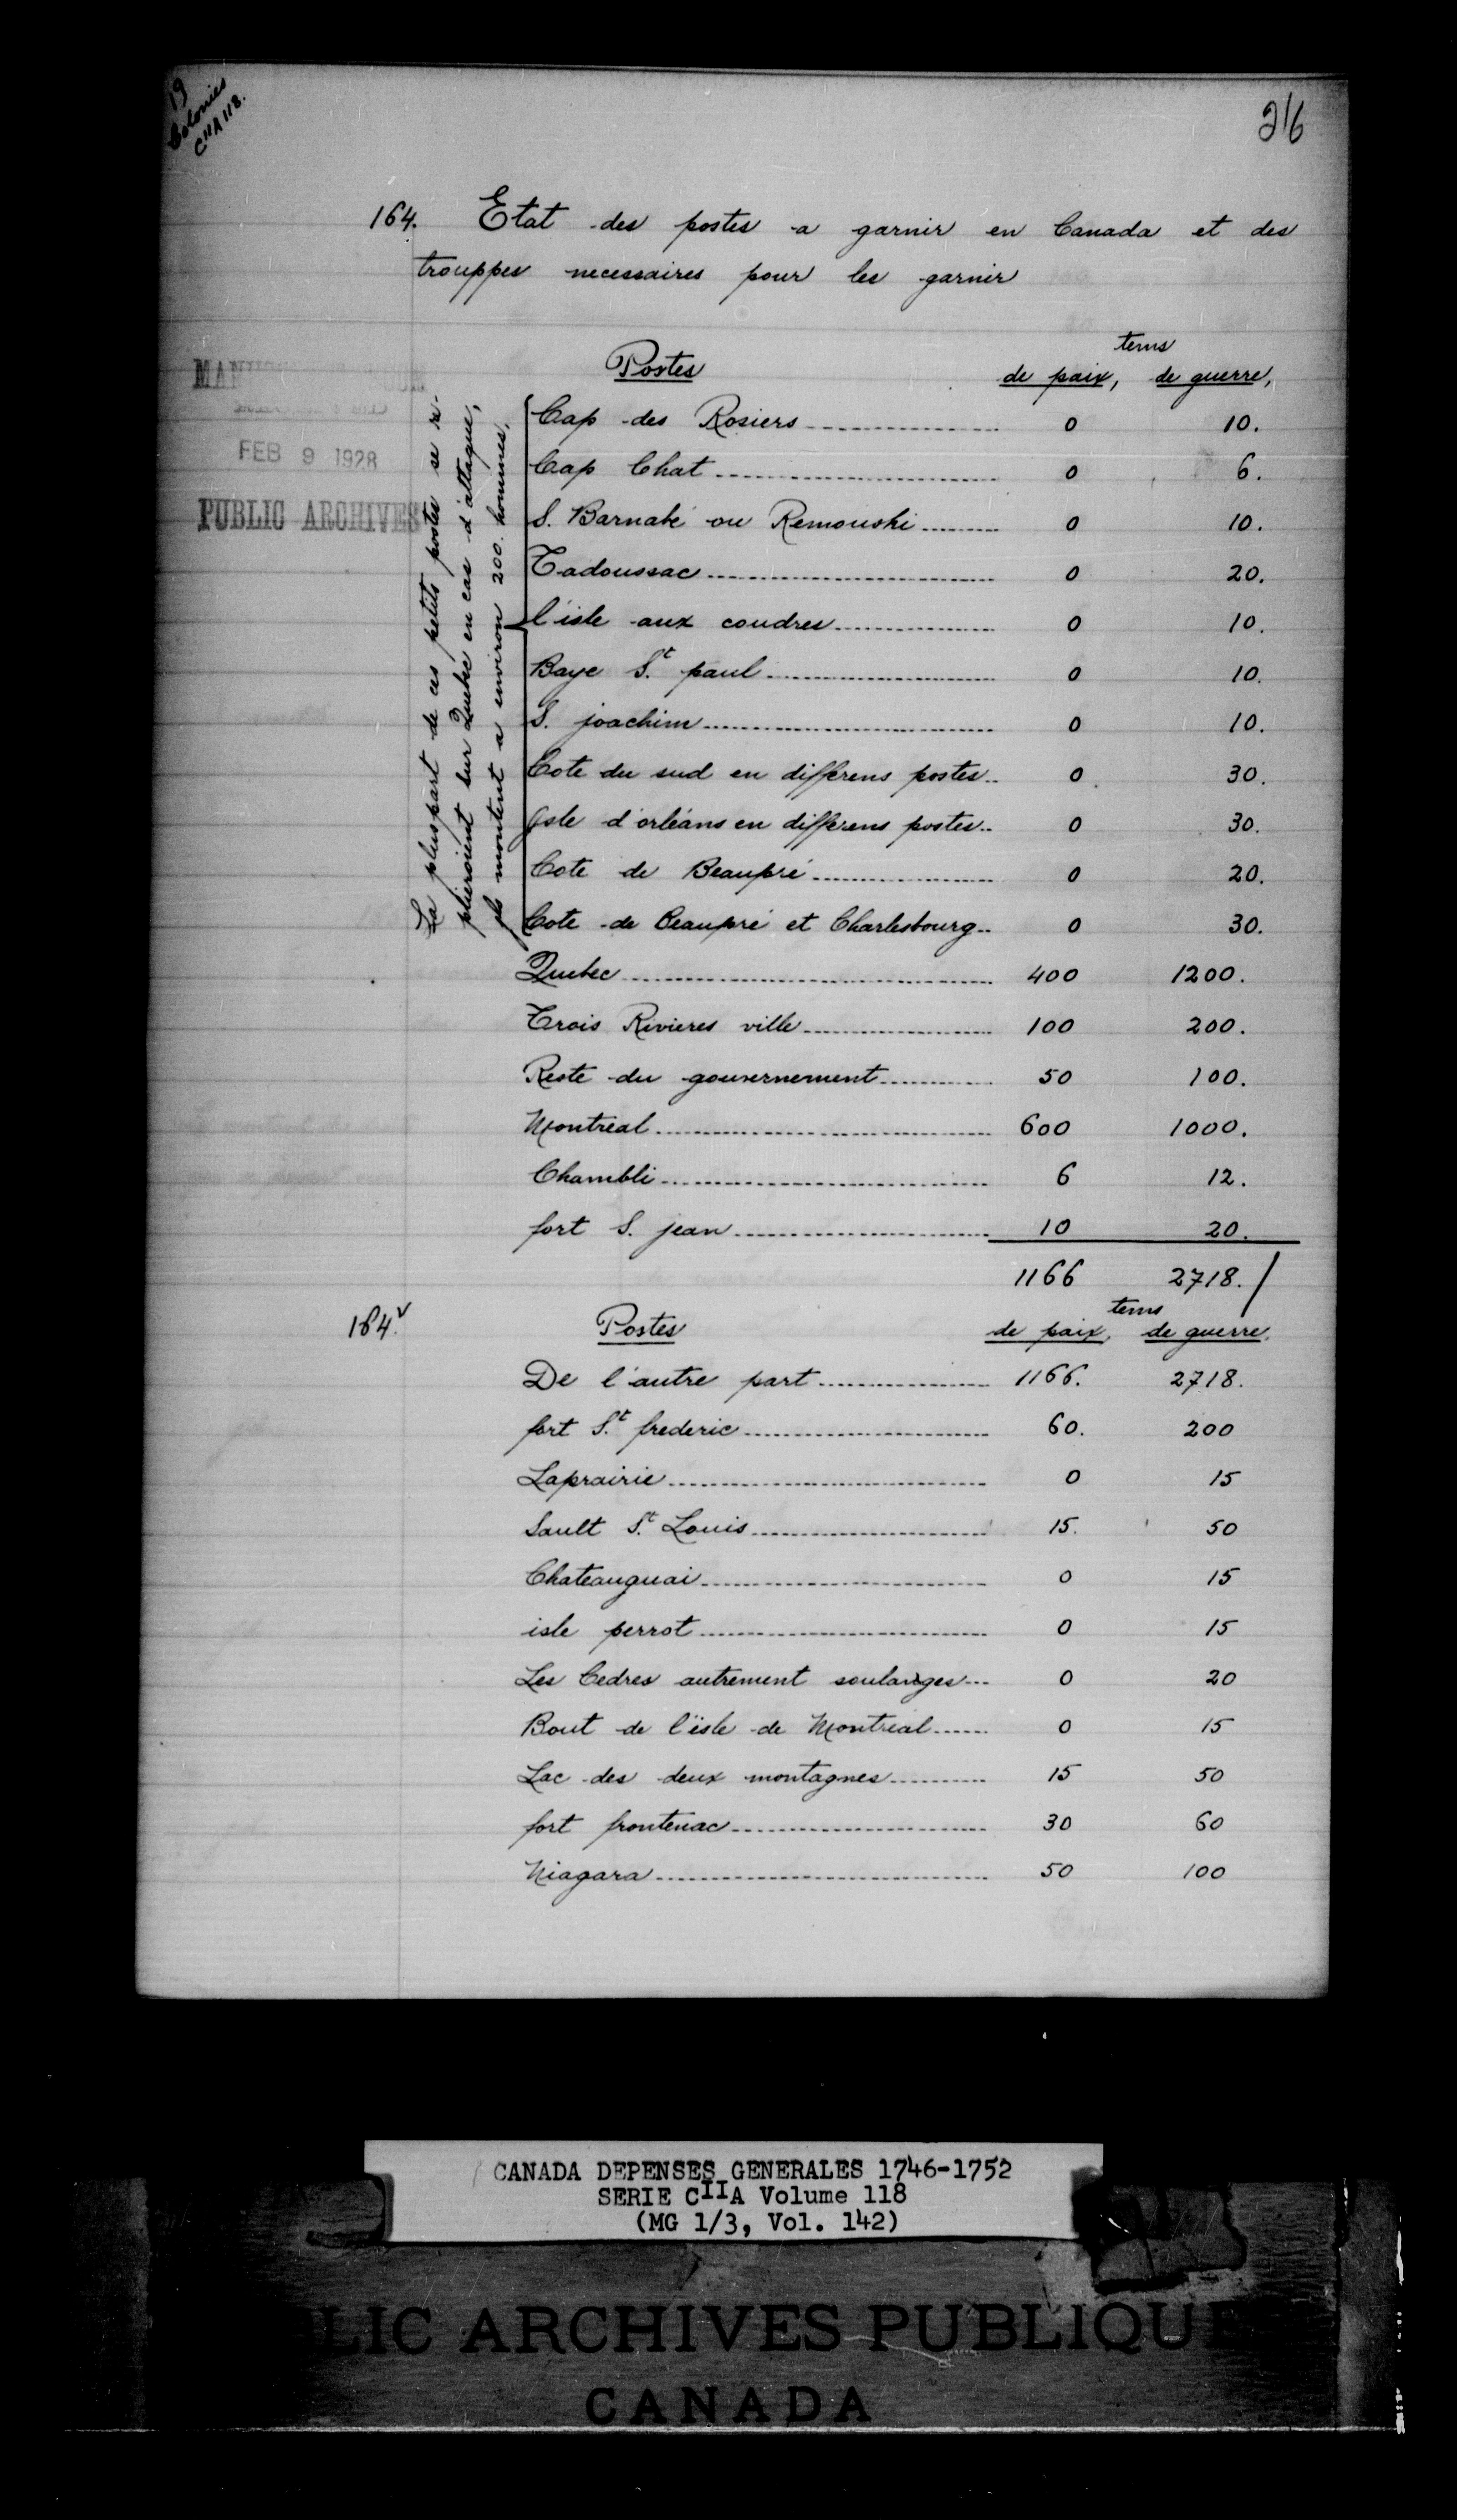 19
Colonies
C11A 118.
216
164. Etat des postes a garnir en Canada et des
trouppes necessaires pour les garnir
Postes tems
de paix, de guerre,
Cap des Rosiers 0 10.
Cap Chat 0 6.
S. Barnabé ou Remouski 0 10.
Tadoussac 0 20.
l'isle aux coudres 0 10.
Baye St. paul 0 10.
S. joachim 0 10.
Cote du sud en differens postes 0 30.
Isle d'orléans en differens postes 0 30.
Cote de Beaupré 0 20.
Cote de Beaupré et Charlesbourg 0 30.
Quebec 400 1200.
Trois Rivieres ville 100 200.
Reste du gouvernement 50 100.
Montreal 600 1000.
Chambli 6 12.
fort S. jean 10 20.
1166 2718.
La pluspart de ces petits postes se re-
plieroient sur Quebec en cas d'attaque,
ils montent a environ 200. hommes.
FEB 9 1928
PUBLIC ARCHIVES
164v. Postes tems
de paix, de guerre.
De l'autre part 1166. 2718.
fort St. frederic 60. 200
Laprairie 0 15
Sault St. Louis 15. 50
Chateauguai 0 15
isle perrot 0 15
Les Cedres autrement soulanges 0 20
Bout de l'isle de Montreal 0 15
Lac des deux montagnes 15 50
fort frontenac 30 60
Niagara 50 100
CANADA DEPENSES GENERALES 1746-1752
SERIE CIIA Volume 118
(MG 1/3, Vol. 142)
LIC ARCHIVES PUBLIQUE
CANADA